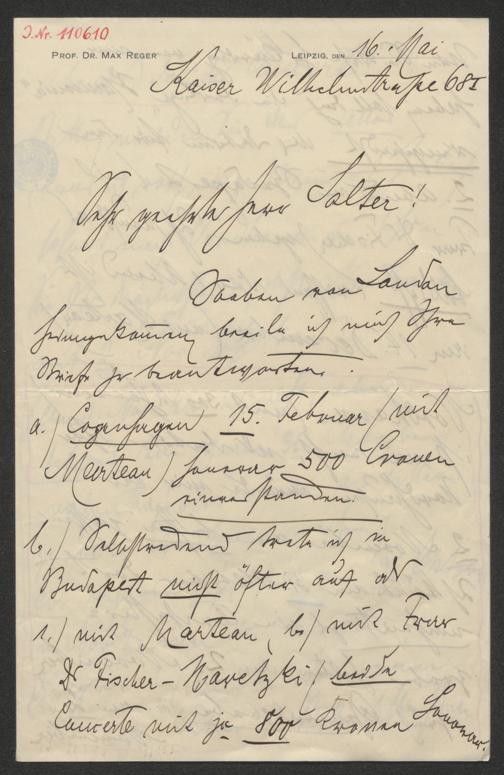 J.Nr. 110610
PROF. DR. MAX REGER LEIPZIG, DEN 16. Mai
Kaiser Wilhelmstraße 68 I
Sehr geehrter Herr Salter!
Soeben von London
heimgekommen, beeile ich mich Ihre
Briefe zu beantworten.
a.) Copenhagen 15. Februar (mit
Marteau) Honorar 500 Cronen
einverstanden.
b.) Selbstredend trete ich in
Budapest nicht öfter auf als
1.) mit Marteau, b.) mit Frau
Dr Fischer-Maretzki / beide
Concerte mit je 800 Kronen Honorar.